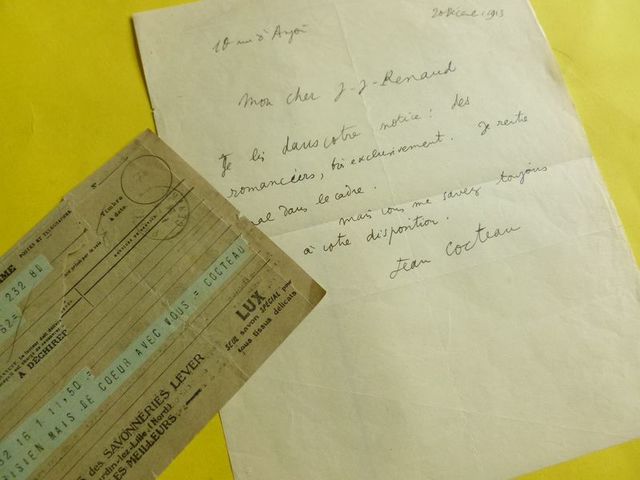 10 rue d'Anjou
20 Décembre 1913
Mon cher J-J-Renaud
Je lis dans votre notice : des
romanciers, très exclusivement. Je rentre
mal dans le cadre.
mais vous me savez toujours
à votre disposition.
Jean Cocteau
N°
Timbre
à date
POSTES ET TÉLÉGRAPHES
232 BL
62=
A DÉCHIRER
AVEC VOUS = COCTEAU
LUX
SEUL savon SPÉCIAL pour
tous tissus délicats
32 16 1 11,50 =
ISIEN MAIS DE COEUR
des SAVONNERIES LEVER
ardin-lez-Lille (Nord)
ES MEILLEURS